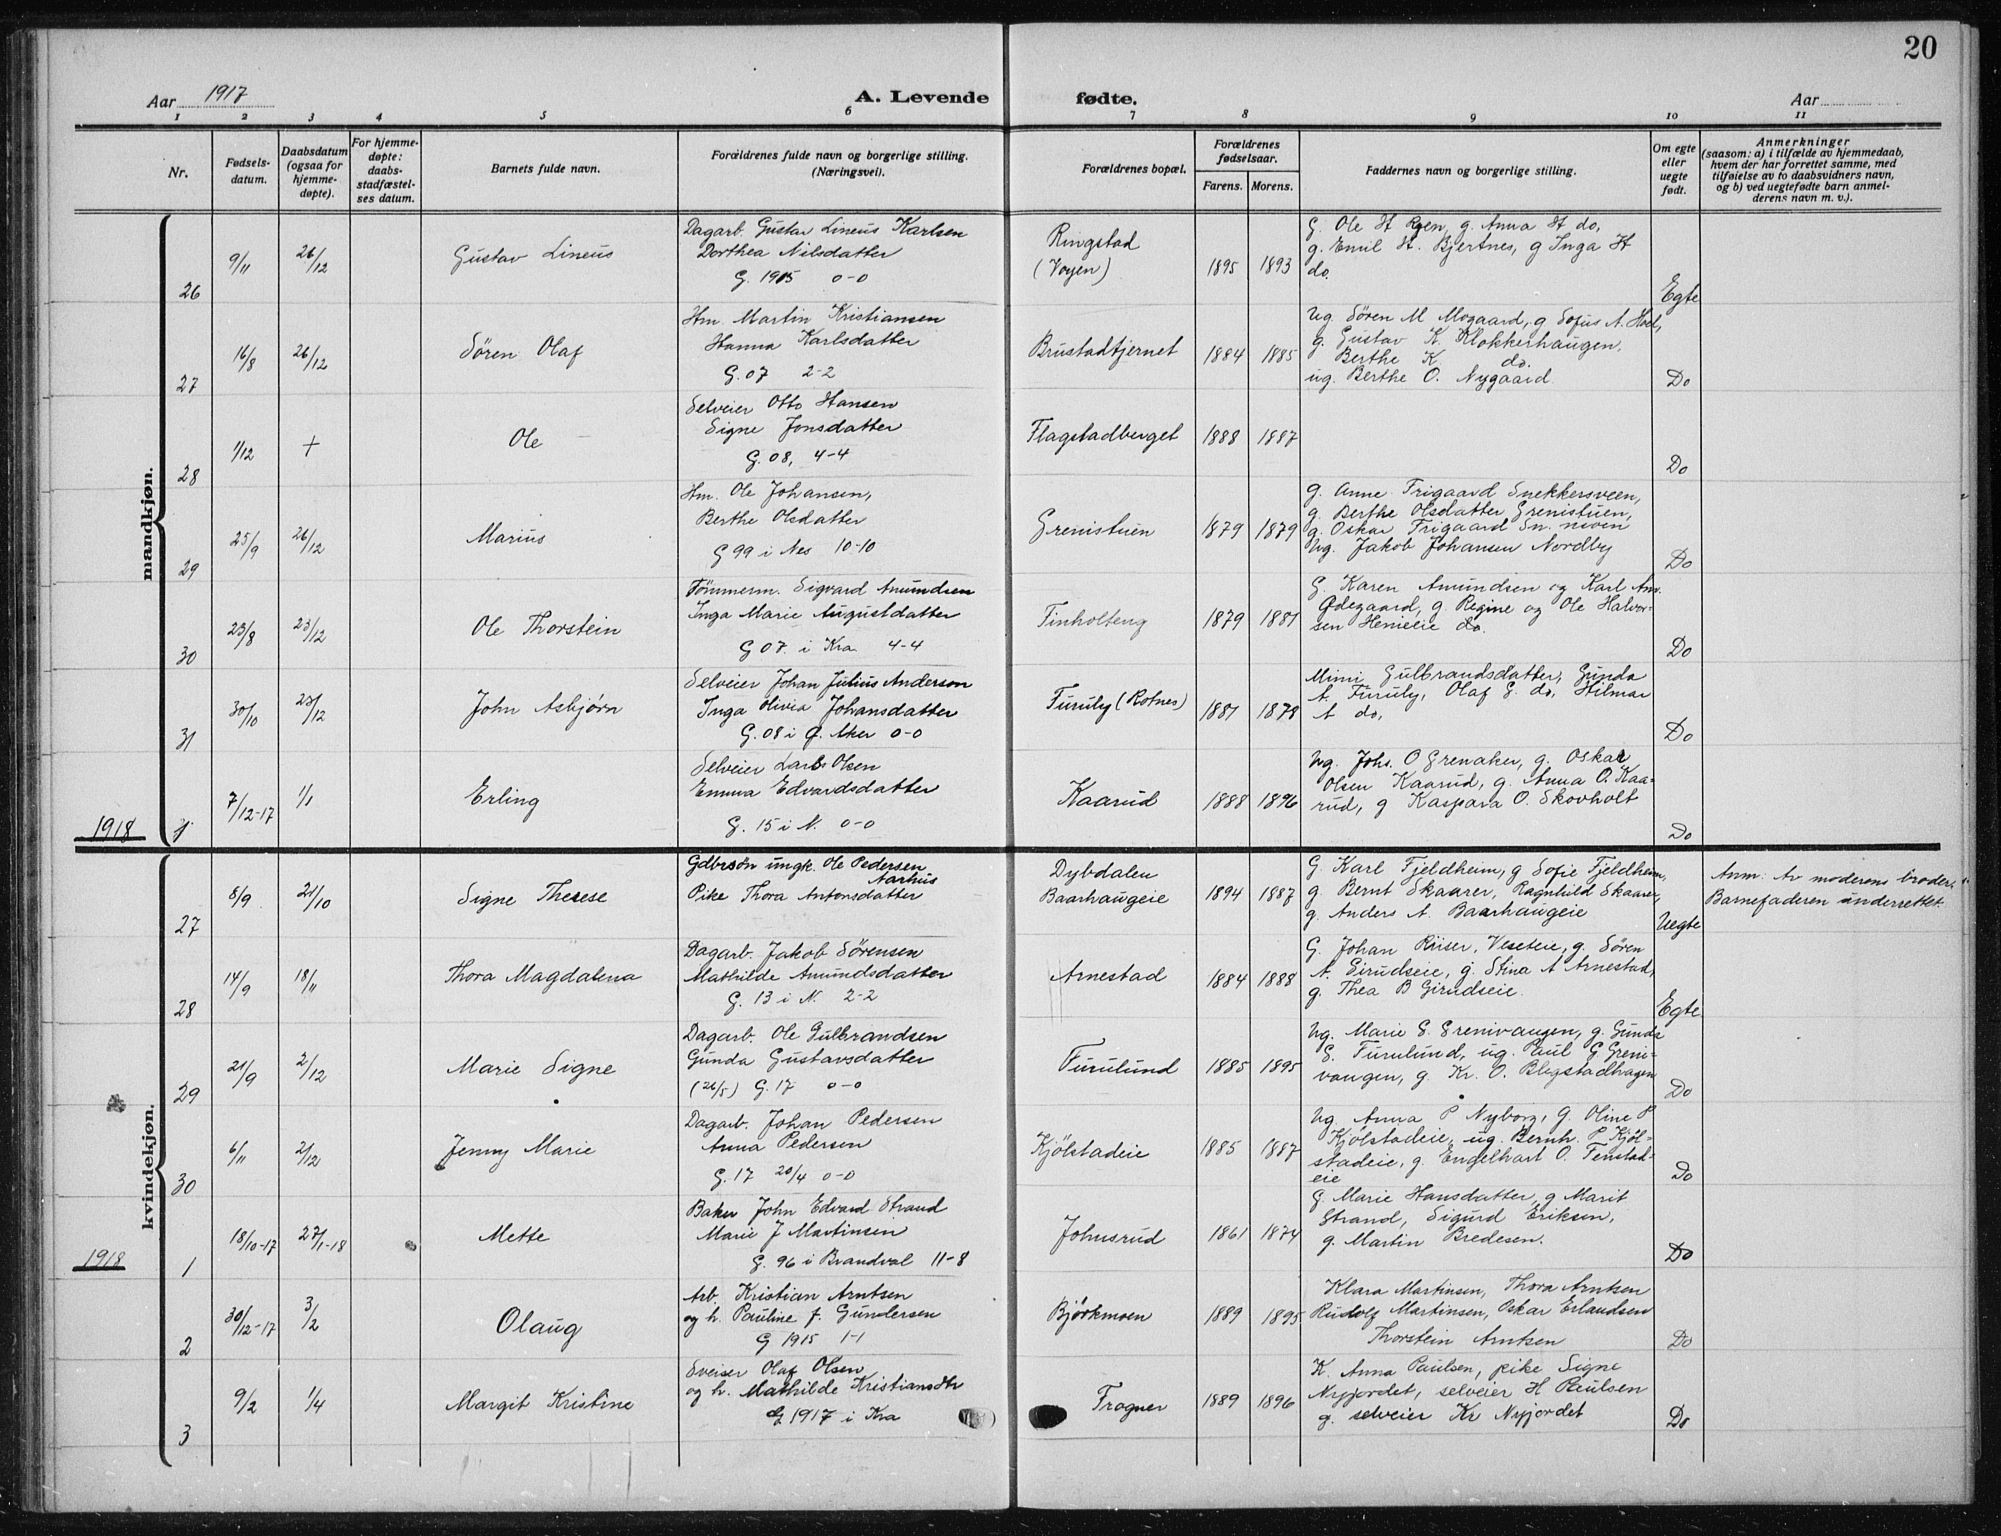 20
Aar 1917
A. Levende fødte.
Aar
1 2 3 4 5 6 7 8 9 10 11
Nr.
Fødsels-
datum.
Daabsdatum
(ogsaa for
hjemme-
døpte).
For hjemme-
døpte:
daabs-
stadfæstel-
ses datum.
Barnets fulde navn.
Forældrenes fulde navn og borgerlige stilling.
(Næringsvei).
Forældrenes bopæl.
Forældrenes
fødselsaar.
Farens. Morens.
Faddernes navn og borgerlige stilling.
Om egte
eller
uegte
født.
Anmerkninger
(saasom: a) i tilfælde av hjemmedaab,
hvem der har forrettet samme, med
tilføielse av to daabsvidners navn,
og b) ved uegtefødte barn anmel-
derens navn m. v.).
mandkjøn.
26 9/11 26/12 Gustav Lineus
Dagarb. Gustav Lineus Karlsen
Dorthea Nilsdatter
G. 1915 0-0
Ringstad
(Voyen)
1895 1893
G. Ole H Roen, g. Anna H do,
g. Emil H. Bjertnes, g Inga H
do.
Egte
27 16/8 26/12 Sören Olaf
Hm. Martin Kristiansen
Hanna Karlsdatter
G. 07 2-2
Brustadtjernet
1884 1885
Ug. Sören M Mogaard, g Sofus A. Hoel,
g. Gustav K. Klokkerhaugen,
Berthe K do.
ug. Berthe O. Nygaard
Do
28 1/12 + Ole
Selveier Otto Hansen
Signe Jonsdatter
G. 08, 4-4
Flagstadberget
1888 1887
Do
29 25/9 26/12 Marius
Hm. Ole Johansen,
Berthe Olsdatter
G 99 i Nes 10-10
Grenistuen
1879 1879
g. Anne Frigaard Snekkersveen,
g. Berthe Olsdatter Grenistuen,
g. Oskar Frigaard Sn. sveen
Ug. Jakob Johansen Nordby
Do
30 23/8 23/12 Ole Thorstein
Tömmerm. Sigvard Amundsen
Inga Marie Augustdatter
G 07. i Kra 4-4
Tinholteng
1879 1881
G. Karen Amundsen og Karl Am.
Ødegaard, g. Regine og Ole Halvor-
sen Henieie do.
Do
31 30/10 28/12 John Asbjørn
Selveier Johan Julius Anderson
Inga Olivia Johansdatter
G. 08 i Ø. Aker 0-0
Furuly (Rotnes)
1881 1878
Mimi Gulbrandsdatter, Gunda
A. Furuly, Olaf G. do, Hilmar
A do,
Do
1918 1 7/12-17 1/1 Erling
Selveier Lars Olsen
Emma Edvardsdatter
G. 15 i N. 0-0
Kaarud
1888 1896
Ug. Johs. O Grenaker, g. Oskar
Olsen Kaarud, g. Anna O. Kaa-
rud, g Kaspara O. Skovholt
Do
kvindekjøn.
27 8/9 21/10 Signe Therese
Gdbrsön ungk. Ole Pedersen
Aarhus
Pike Thora Antonsdatter
Dybdalen
Baarhaugeie
1894 1887
G Karl Fjeldheim, g Sofie Fjeldheim,
g. Bernt Skaarer, Ragnhild Skaarer,
g. Anders A. Baarhaugeie
Uegte
Anm. Av moderens broder.
Barnefaderen underrettet.
28 14/9 18/11 Thora Magdalena
Dagarb. Jakob Sörensen
Mathilde Amundsdatter
G. 13 i N. 2-2
Arnestad
1884 1888
G. Johan Riiser, Veseteie, g. Sören
A. Girudseie, g. Stina A Arnestad,
g. Thea B Girudseie.
Egte
29 21/9 2/12 Marie Signe
Dagarb. Ole Gulbrandsen
Gunda Gustavsdatter
(26/5) G. 17 0-0
Furulund
1885 1895
Ug. Marie G. Grenivangen, g. Gunda
G. Furulund, ug. Paul G Greni-
vangen, g. Kr. O. Blegstadhagen
Do
30 6/11 2/12 Jenny Marie
Dagarb. Johan Pedersen
Anna Pedersen
G. 17 20/4 0-0
Kjölstadeie
1885 1887
Ug. Anna P Nyborg, G. Oline P
Kjölstadeie, ug. Bernh. P Kjöl-
stadeie, g. Engelhart O. Fenstad-
eie
Do
1918 1 18/10-17 27/1-18 Mette
Baker John Edvard Strand
Marie J Martinsen
G. 96 i Brandval 11-8
Johnsrud
1861 1874
G. Marie Hansdatter, g Marit
Strand, Sigurd Eriksen,
g. Martin Bredesen.
Do
2 30/12-17 3/2 Olaug
Arb. Kristian Arntsen
og h. Pauline f. Gundersen
G 1915 1-1
Bjørkmoen
1889 1895
Klara Martinsen, Thora Arntsen
Rudolf Martinsen, Oskar Erlandsen
Thorstein Arntsen
Do
3 9/2 1/4 Margit Kristine
Sveiser Olaf Olsen
og h. Mathilde Kristiansdtr
G 1917 i Kra
Frogner
1889 1896
K. Anna Paulsen, pike Signe
Nyjordet, selveier H Paulsen
g. selveier Kr Nyjordet
Do